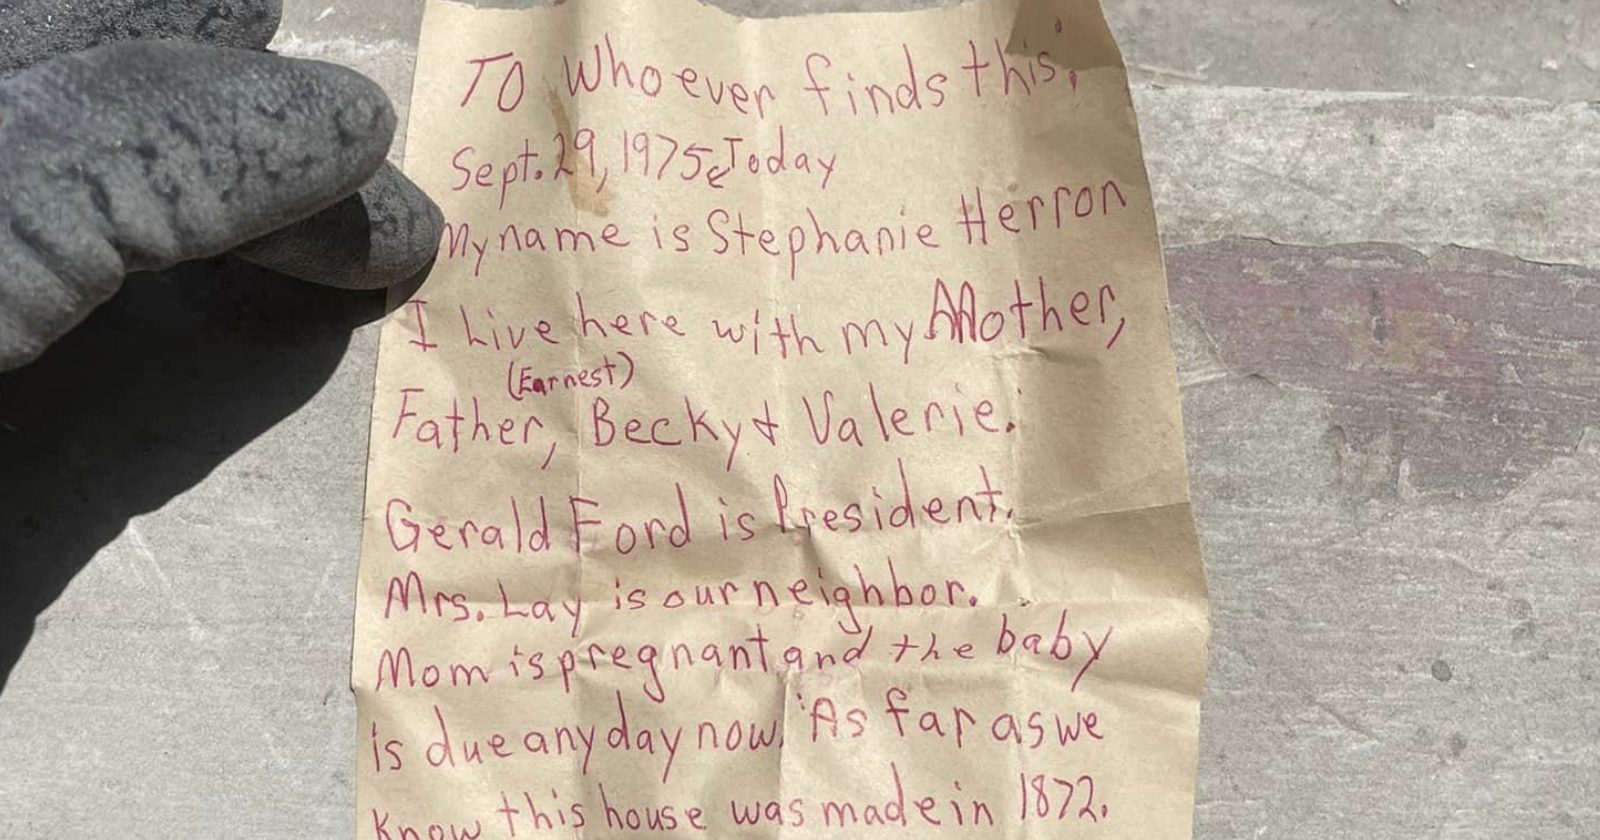 To Whoever finds this;
Sept. 29, 1975, Today
My name is Stephanie Herron
I Live here with my Mother,
(Earnest)
Father, Becky & Valerie.
Gerald Ford is President.
Mrs. Lay is our neighbor.
Mom is pregnant and the baby
is due any day now. As far as we
know this house was made in 1872.